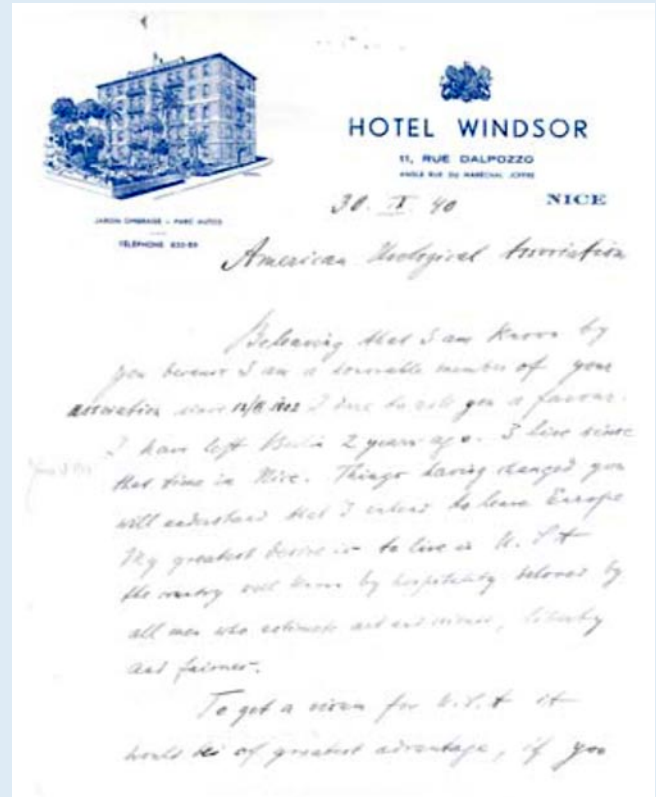 HOTEL WINDSOR
11, RUE DALPOZZO
ANGLE RUE DU MARÉCHAL JOFFRE
NICE
JARDIN OMBRAGÉ - PARC AUTOS
TÉLÉPHONE
30. X 40
American Urological Association
Beleaving that I am Known by
you because I am a honorable member of your
association since I to ask you a favour.
I have left Berlin 2 years ago. I live since
that time in Nice. Things having changed you
will understand that I intend to leave Europe
My greatest desire is to live in U.S.A
the country well known by hospitality beloved by
all men who estimate art and science, liberty
and fairnes.
To get a visum for U.S.A it
would be of greatest advantage, if you